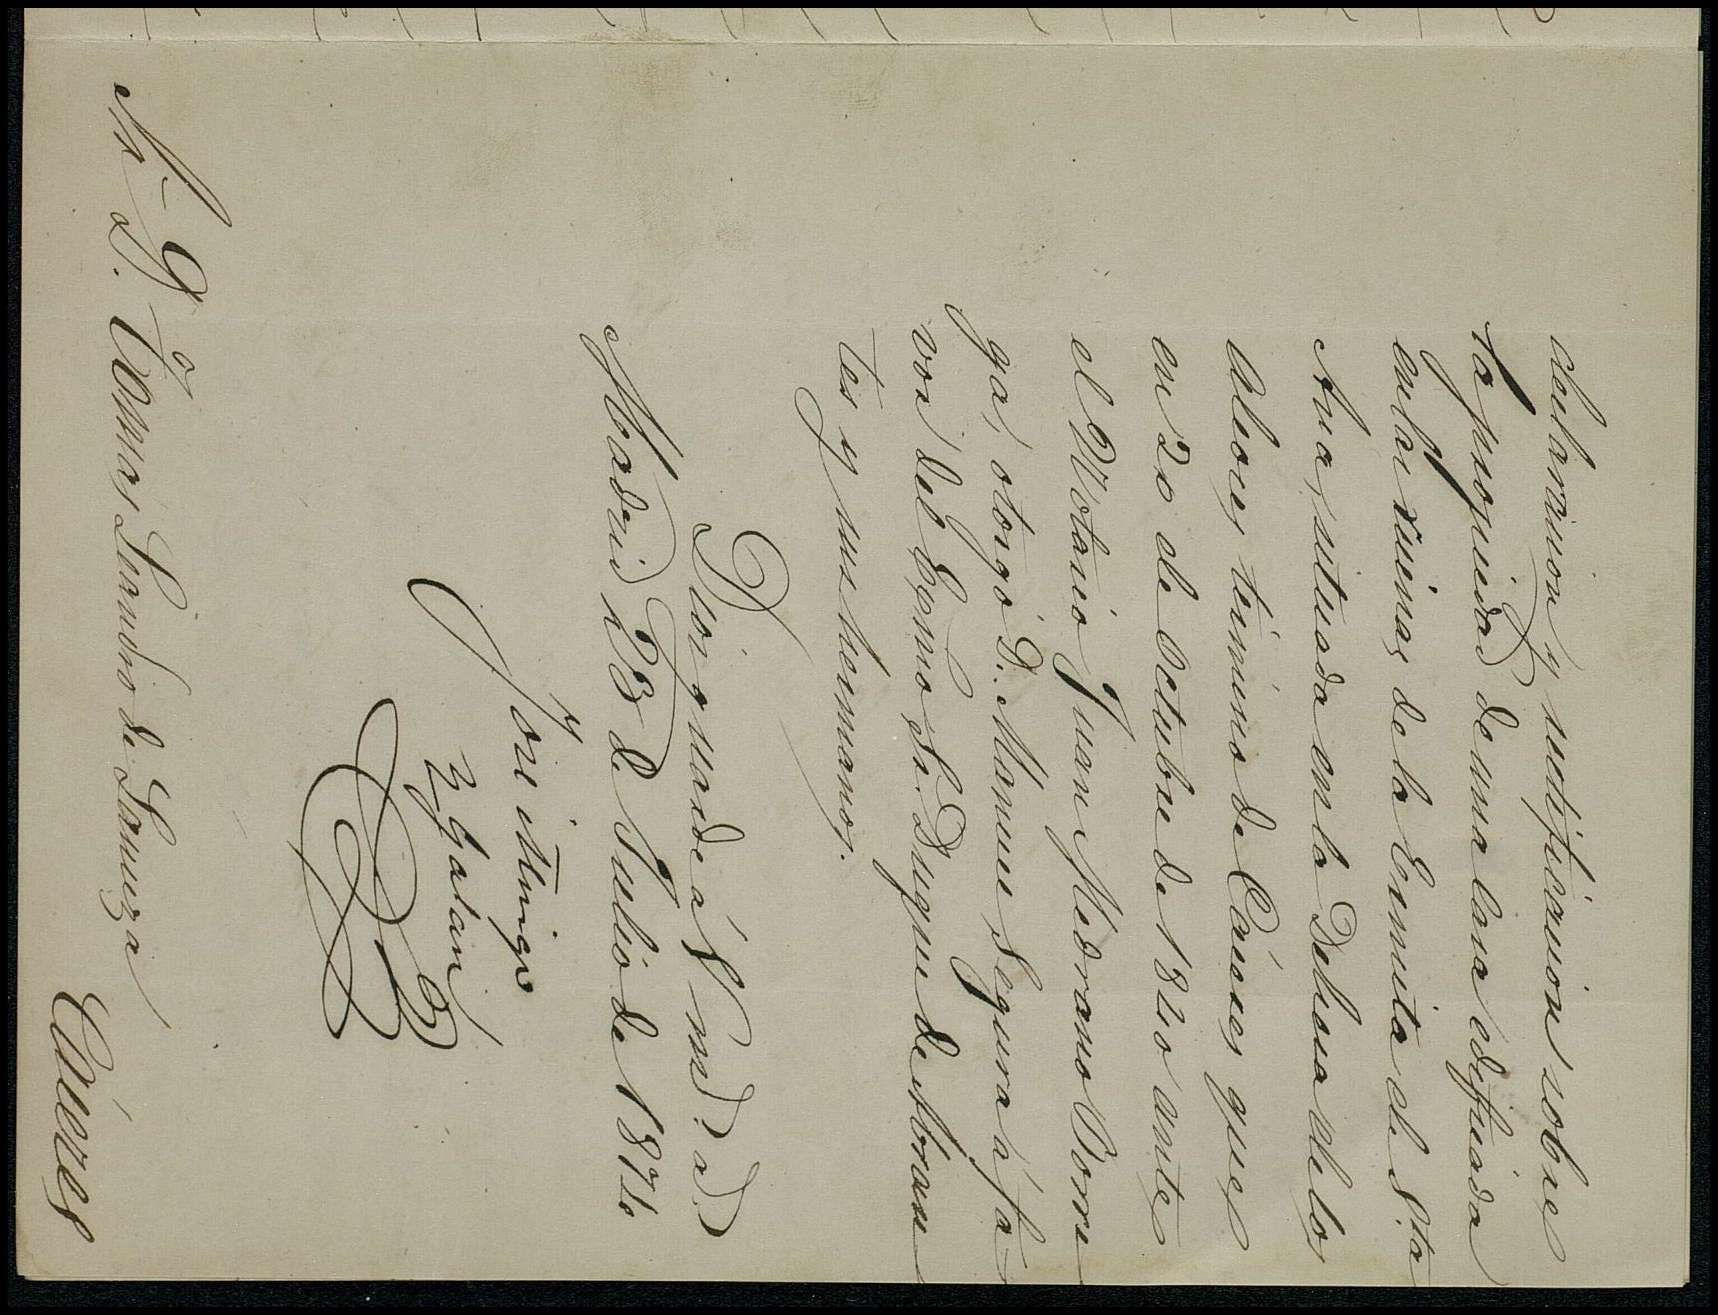 declaracion y ratificacion sobre
la propiedad de una Casa edificada
en las ruinas de la Ermita de Sta
Ana, situada en la Dehesa de los
Alcores, término de Cáceres, que
en 20 de Octubre de 1840 ante
el Notario Juan Medrano Torre
ga, otorgó D. Manuel Segura á fa-
vor del Excmo Sr. Duque de Abran
tes y sus hermanos.
Dios guarde á V md. ad.
Madrid 23 de Julio de 1874
José
y Galan
D. Tomas Leandro de Lanuza
Cáceres